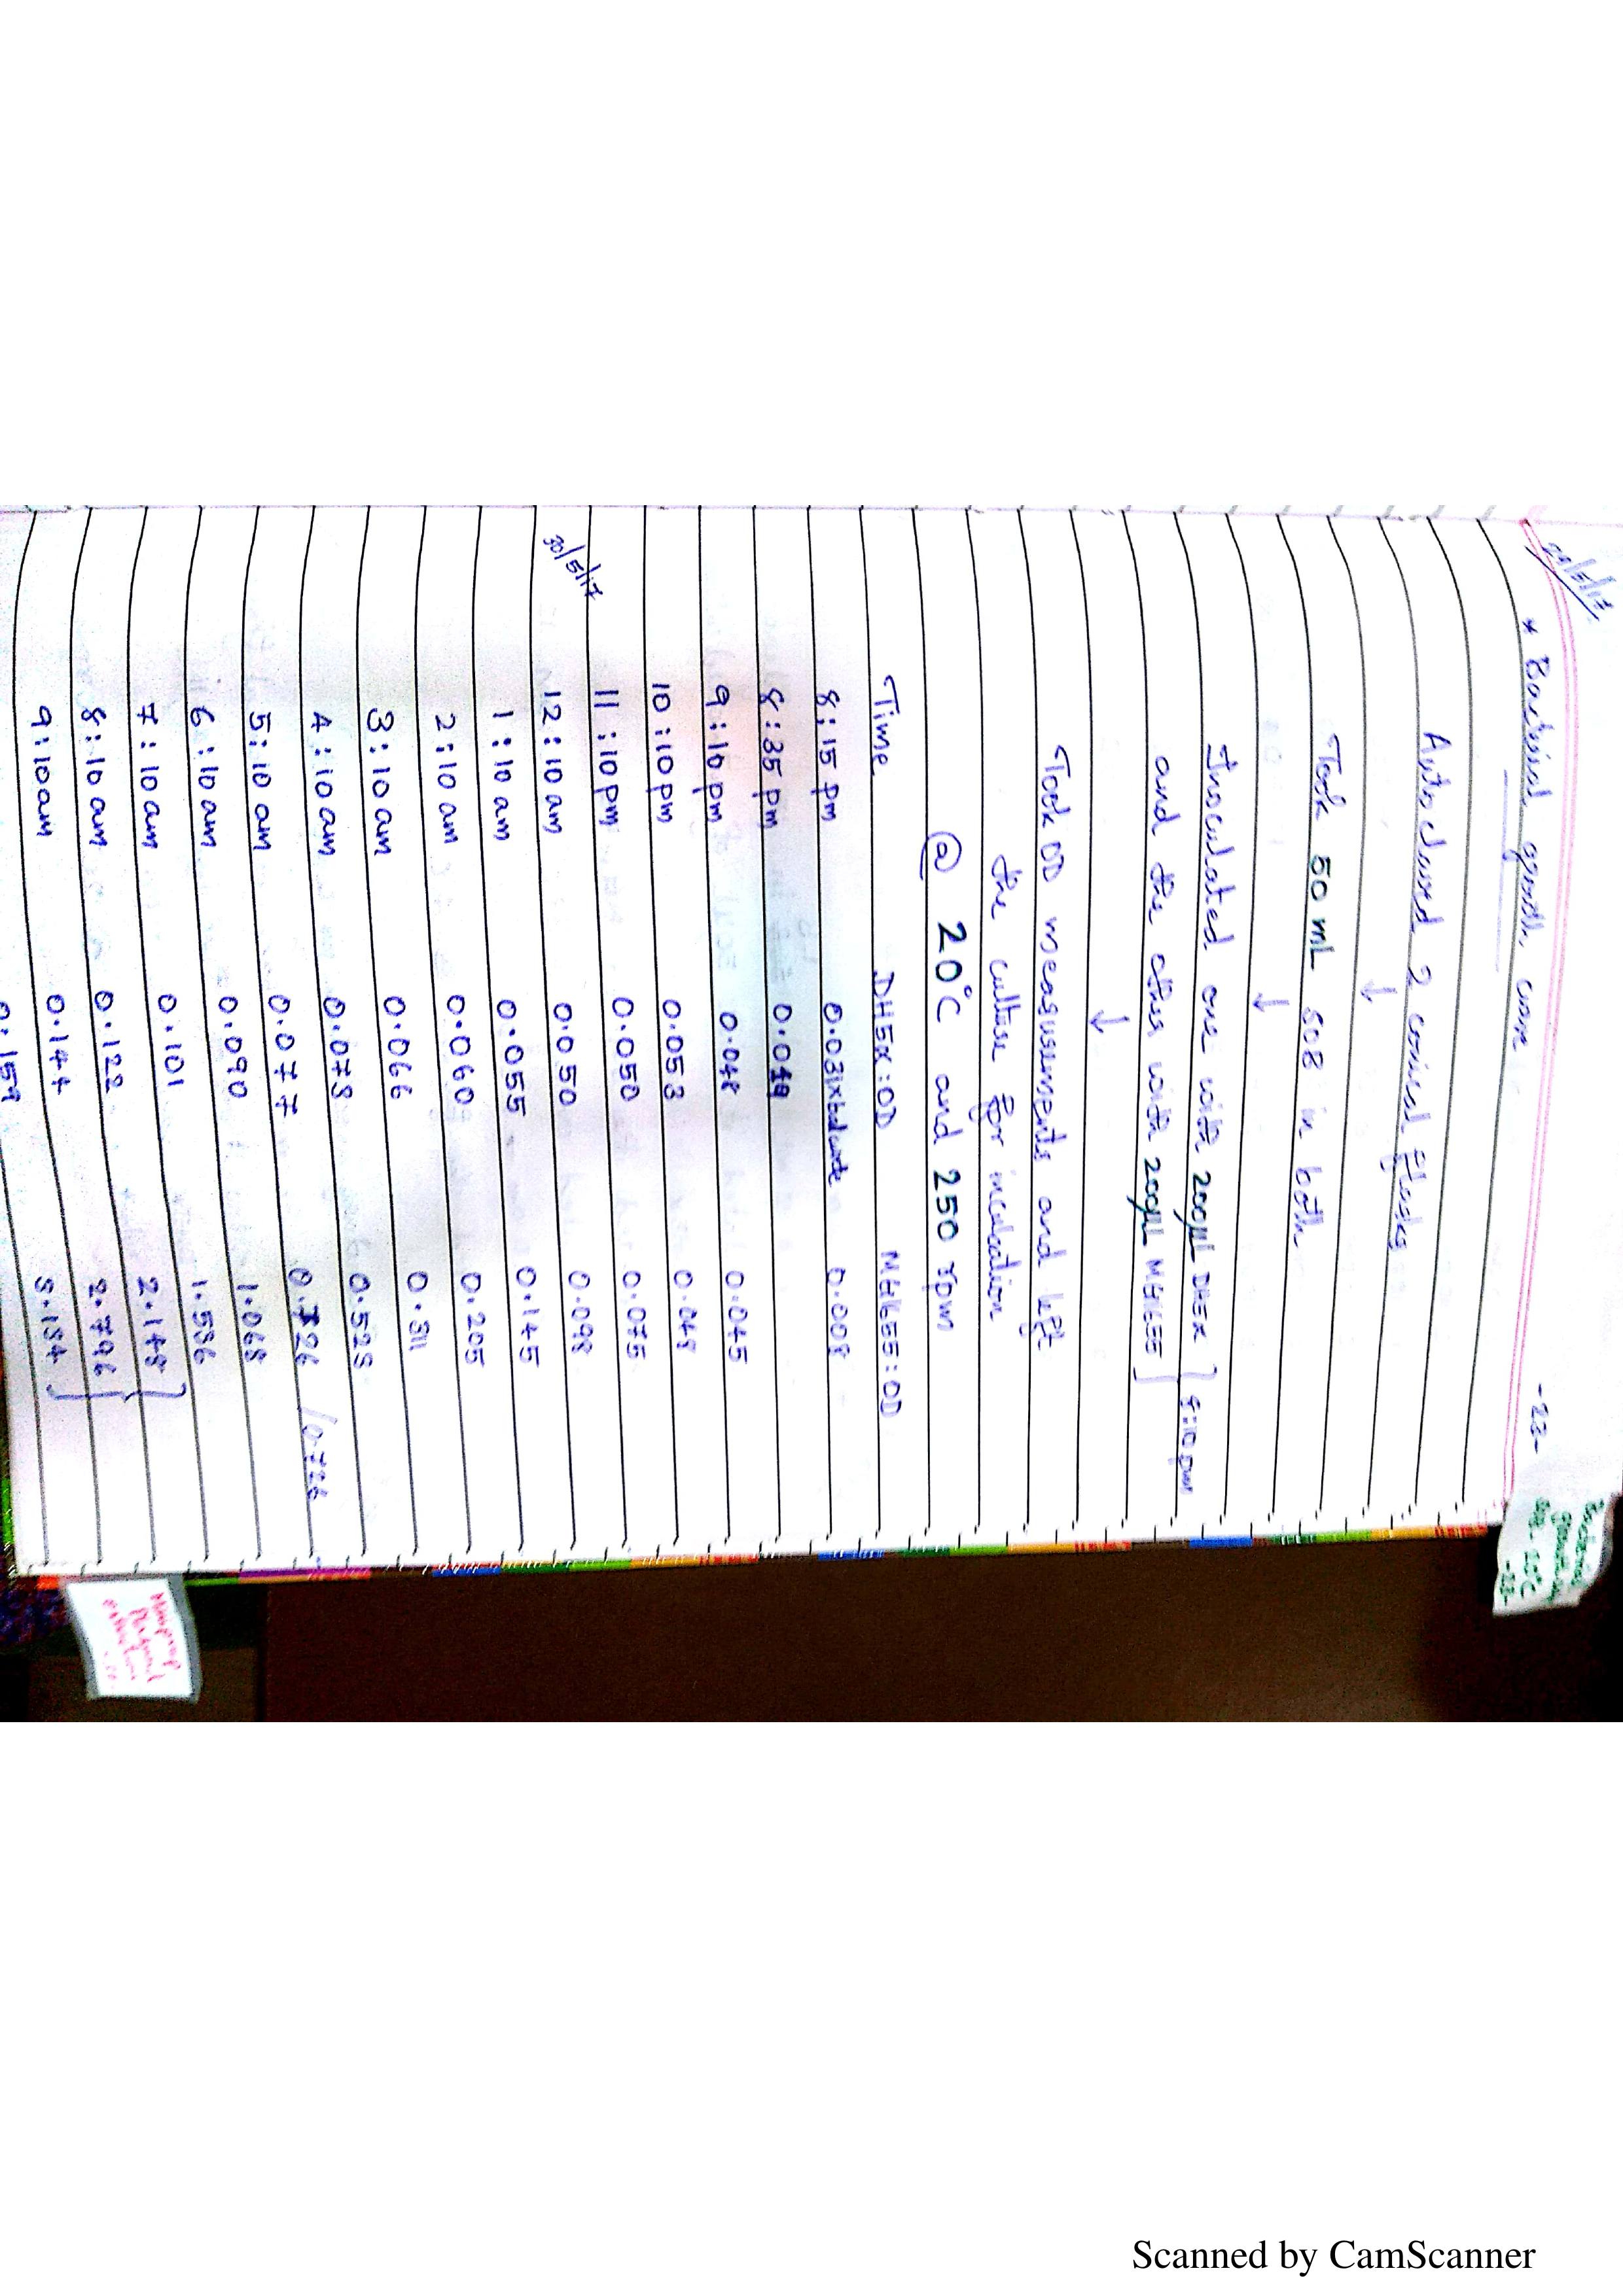 29/5/17
-23-
* Bacterial growth curve
Autoclaved 2 conical flasks
↓
Took 50 mL SOB in both
↓
Inoculated one with 200µL DH5α } 8:10 pm
and the other with 200µL
↓
Took OD measurements and left
the culture for incubation
@ 20°C and 250 rpm
Time DH5α:OD :OD
8:15 pm 0.031 0.008
8:35 pm
9:10 pm 0.048 0.045
10:10 pm 0.053 0.048
11:10 pm 0.050 0.075
30/5/17
12:10 am 0.050 0.098
1:10 am 0.055 0.145
2:10 am 0.060 0.205
3:10 am 0.066 0.311
4:10 am 0.078 0.528
5:10 am 0.077 0.726 /0.726
6:10 am 0.090 1.068
7:10 am 0.101 1.536
8:10 am 0.122 2.148 }
9:10am 0.144 2.796 }
0.159 3.184 }
Miniprep
Plasmid
Scanned by CamScanner